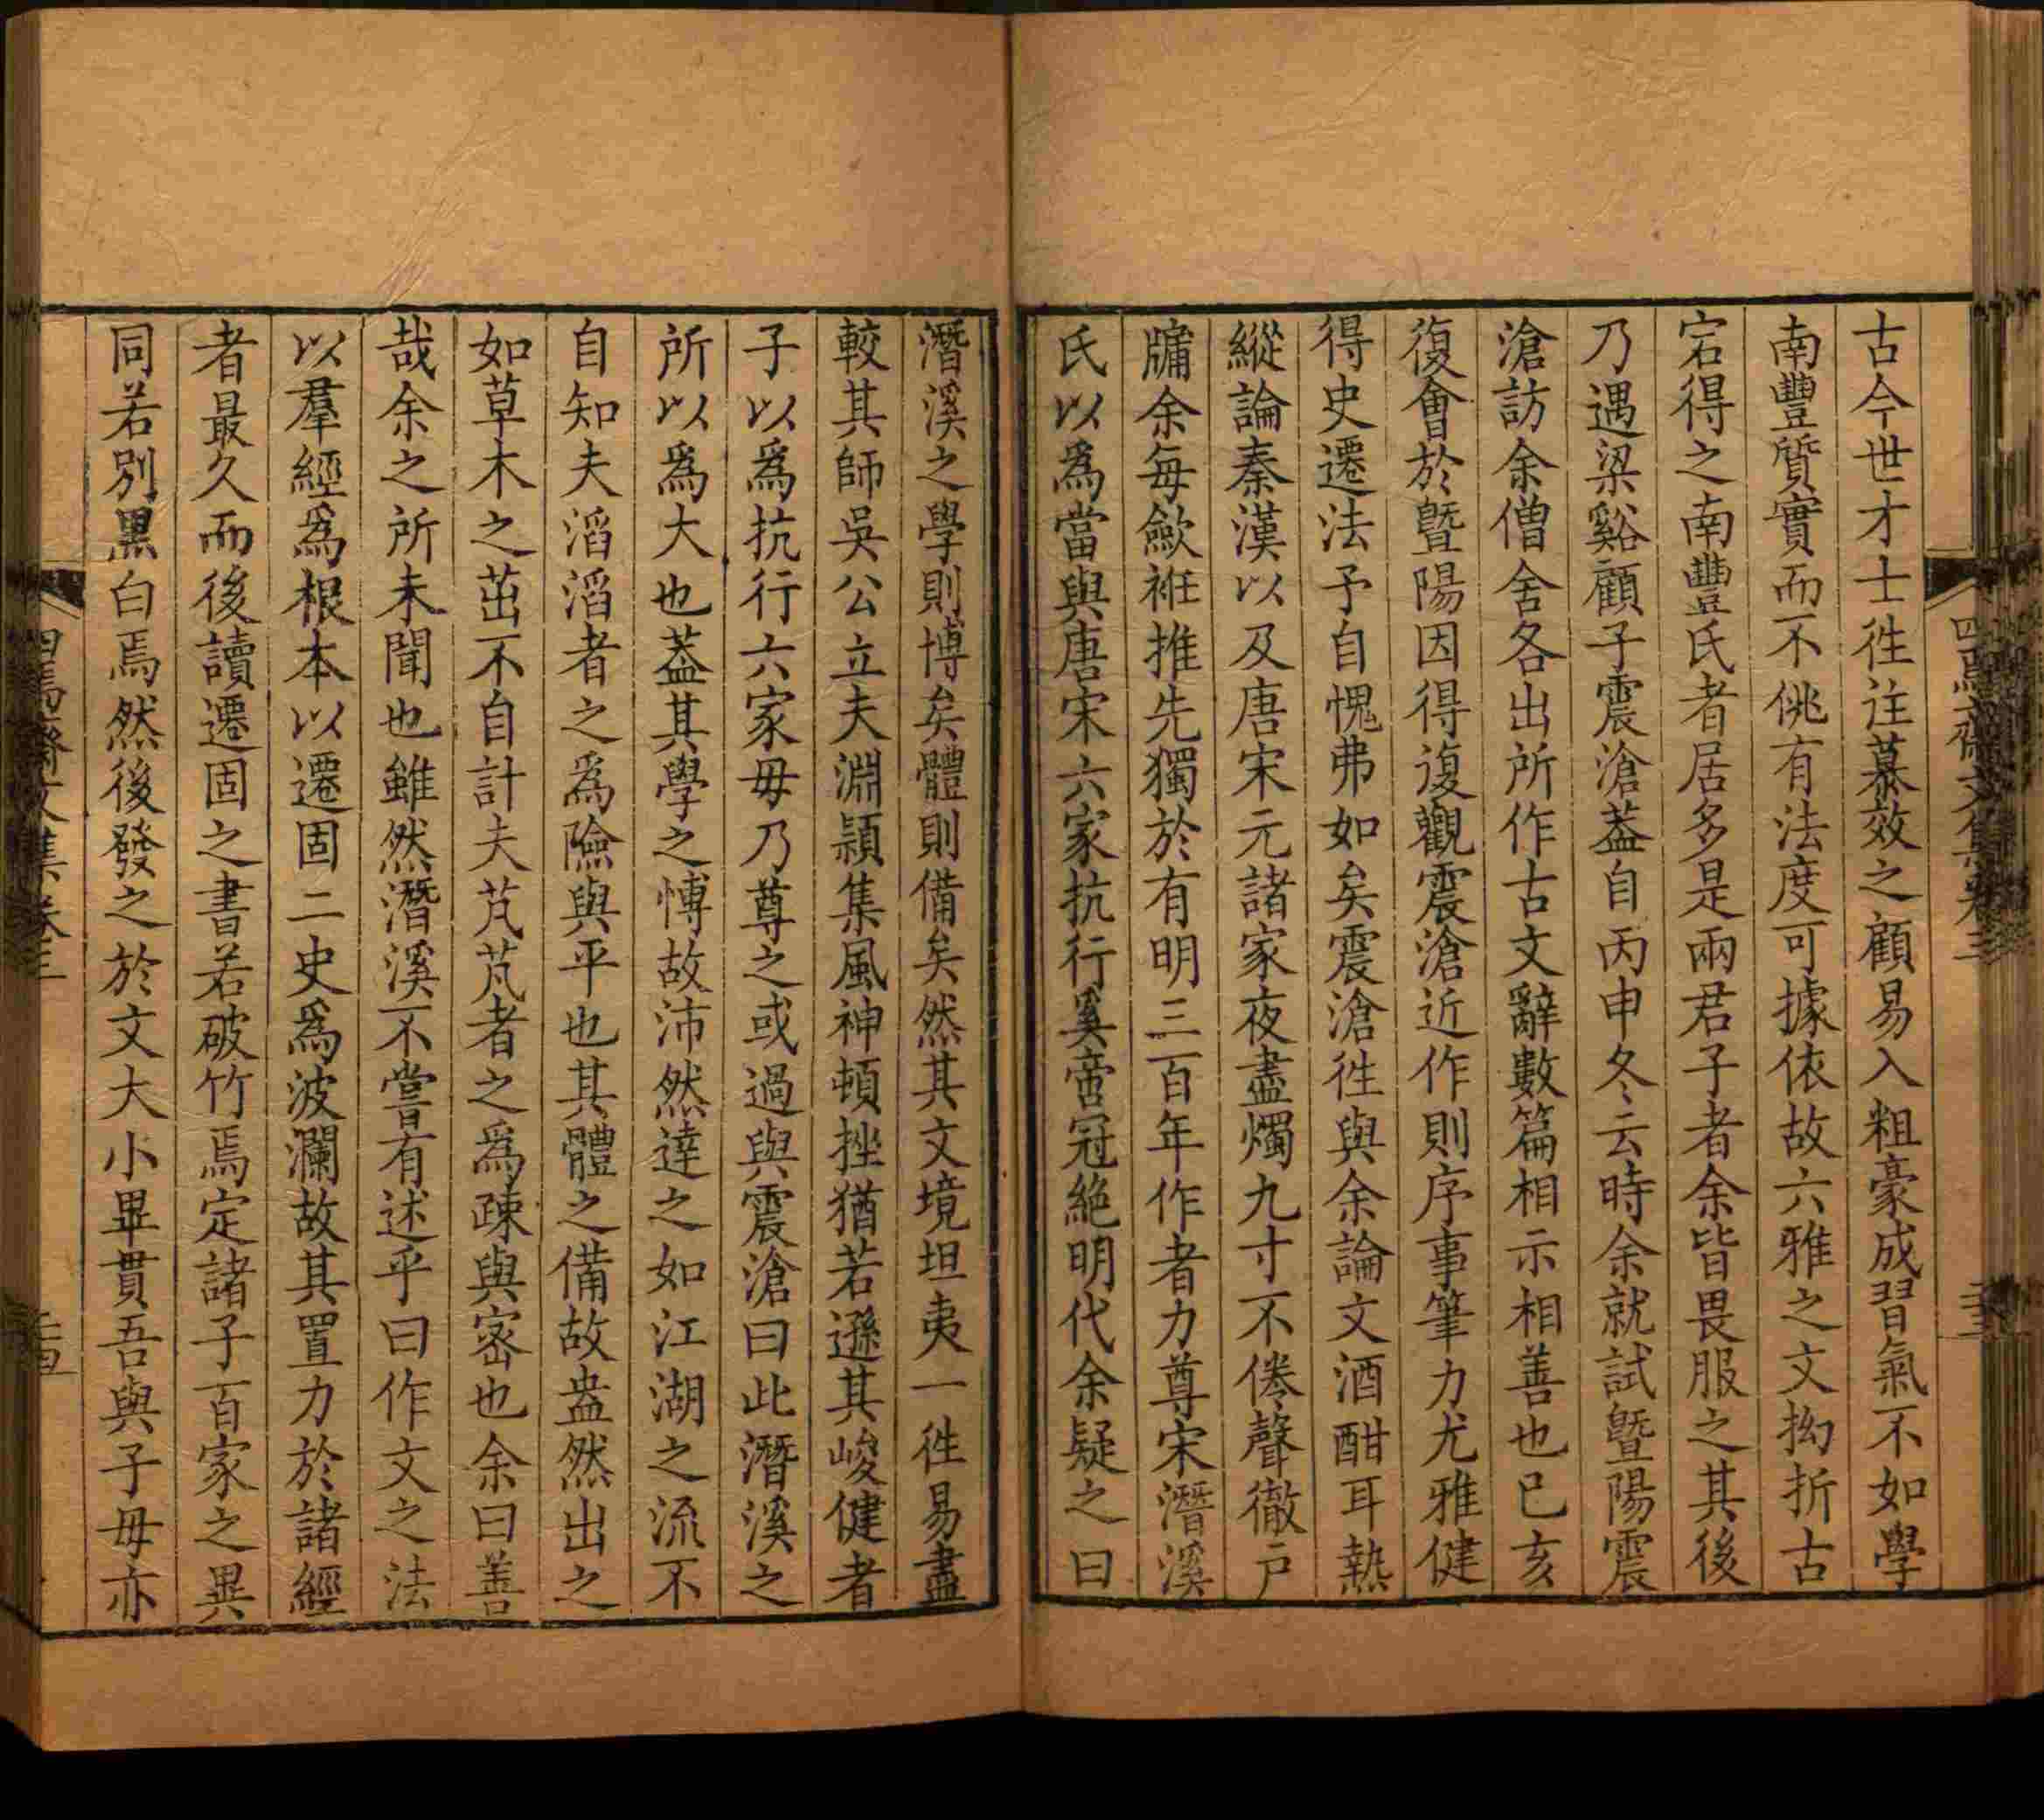 古今世才士徃注慕效之顧易入粗豪成習氣不如學
南豐質實而不佻有法度可據依故六雅之文拗折古
宕得之南豐氏者居多是兩君子者余皆畏服之其後
乃遇梁谿顧子震滄葢自丙申冬云時余就試曁陽震
滄訪余僧舍各出所作古文辭數篇相示相善也已亥
復會於曁陽因得復觀震滄近作則序事筆力尤雅健
得史遷法予自愧弗如矣震滄徃與余論文酒酣耳熱
縱論秦漢以及唐宋元諸家夜盡燭九寸不倦聲徹戸
牗余每歛袵推先獨於有明三百年作者力尊宋潛溪
氏以爲當與唐宋六家抗行奚啻冠絶明代余疑之曰
潛溪之學則博矣體則備矣然其文境坦夷一徃易盡
較其師吳公立夫淵頴集風神頓挫猶若遜其峻健者
子以爲抗行六家毋乃尊之或過與震滄曰此潛溪之
所以爲大也葢其學之愽故沛然達之如江湖之流不
自知夫滔滔者之爲險與平也其體之備故盎然出之
如草木之茁不自計夫芃芃者之爲疎與宻也余曰善
哉余之所未聞也雖然潛溪不嘗有述乎曰作文之法
以羣經爲根本以遷固二史爲波瀾故其置力於諸經
者最久而後讀遷固之書若破竹焉定諸子百家之異
同若別黒白焉然後發之於文大小畢貫吾與子毋亦
四焉齋文集卷三